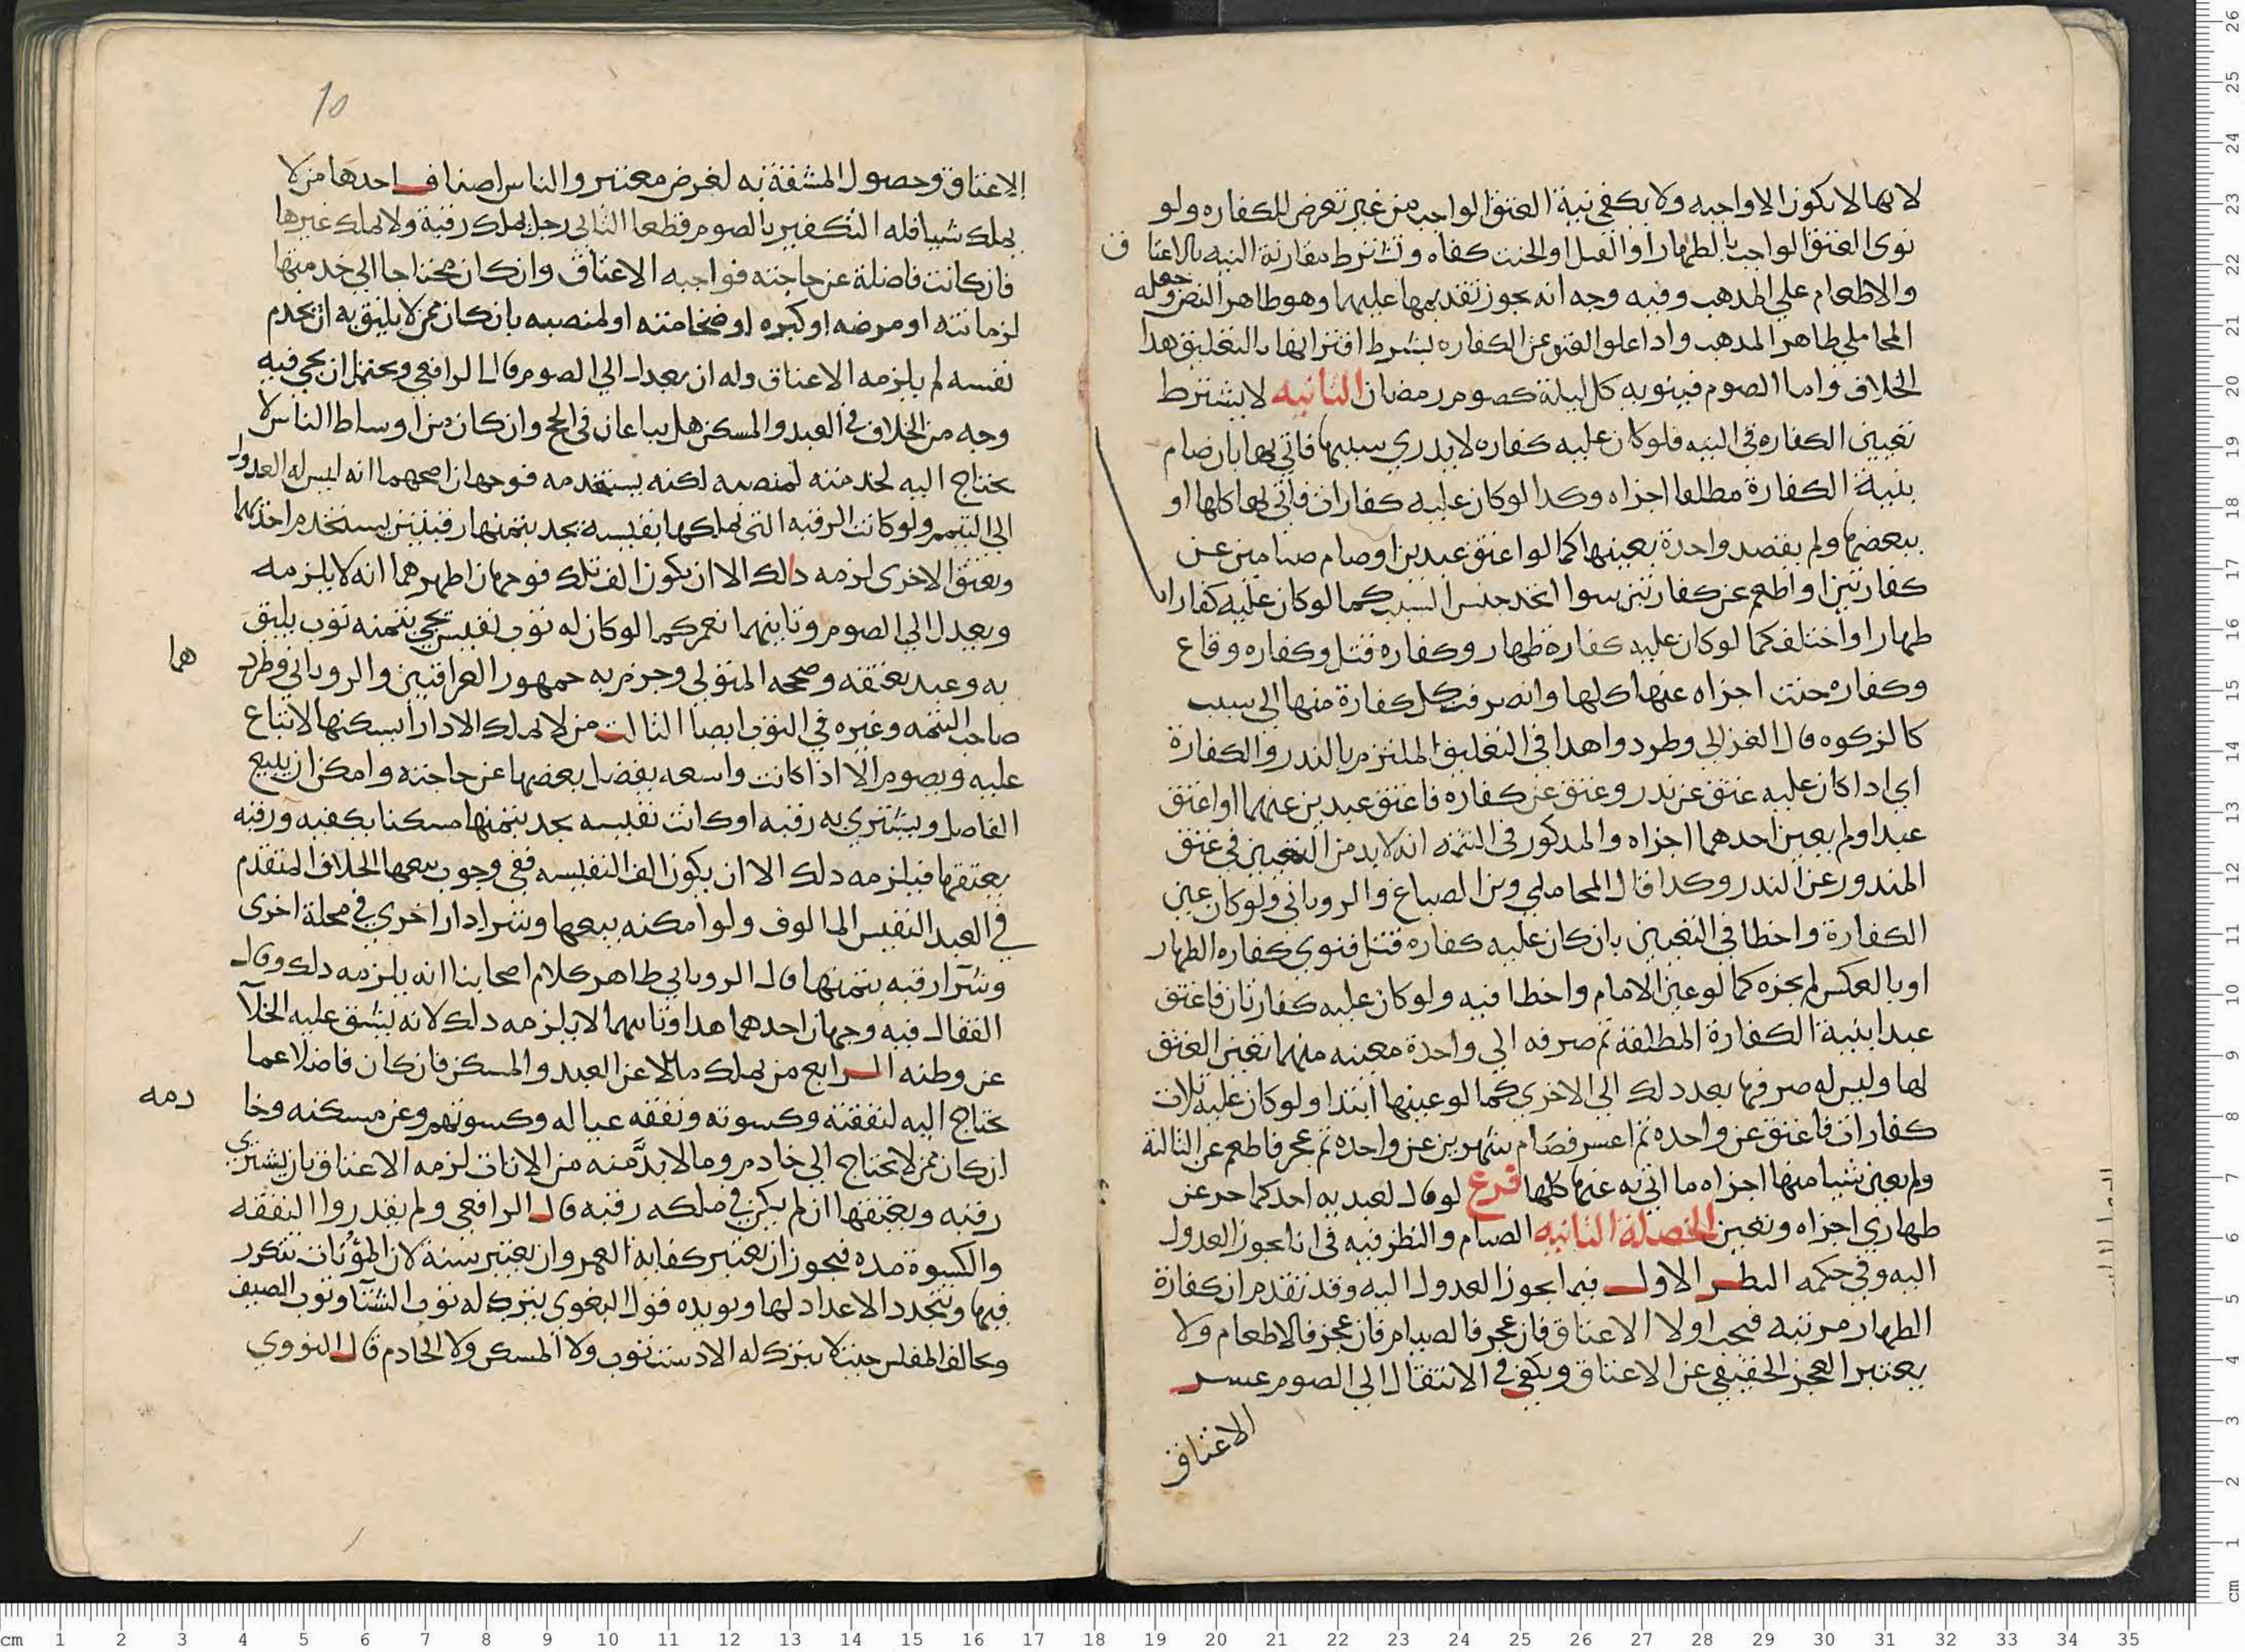 لانها لا تكون الا واجبه ولا يكفي نية العتق الواجب من غير تعرض للكفاره ولو
نوى العتق الواجب بالظهار او القتل او الحنث كفاه وتشترط مقارنة النيه بالاعتا ق
والاطعام علي المدهب وفيه وجه انه يجوز تقديمها عليهما وهو ظاهر النص وجعله
المحاملي ظاهر المدهب وادا علق العتق عن الكفاره بشرط اقترانها بالتعليق هدا
الخلاف واما الصوم فينويه كل ليلة كصوم رمضان الثانيه لا يشترط
تعيين الكفاره في النيه فلو كان عليه كفاره لا يدري سببها فاتي بها بان صام
بنية الكفارة مطلقا اجزاه وكدا لو كان عليه كفارات فاتي بها كلها او
ببعضها ولم يقصد واحدة بعينها كما لو اعتق عبدين او صام صيامين عن
كفارتين او اطعم عن كفارتين سوا اتحد جنس السبب كما لو كان عليه كفارات
ظهار او اختلف كما لو كان عليه كفارة ظهار وكفارة قتل وكفاره وقاع
وكفاره حنث اجزاه عنها كلها وانصرفت كل كفارة منها الي سبب
كالزكوه قال الغزالي وطردوا هدا في التعليق الملتزم بالندر والكفارة
اي ادا كان عليه عتق عن ندر وعتق عن كفاره فاعتق عبدين عنهما او اعتق
عبدا ولم يعين احدهما اجزاه والمدكور في التتمه انه لا بد من التعيين في عتق
المندور عن الندر وكدا قال المحاملي وبن الصباغ والروياني ولو كان عين
الكفارة واخطا في التعيين بان كان عليه كفاره قتل فنوي كفاره الظهار
او بالعكس لم يجزه كما لو عين الامام واخطا فيه ولو كان عليه كفارتان فاعتق
عبدا بنية الكفارة المطلقة ثم صرفه الي واحدة معينه منهما تعين العتق
لها وليس له صرفها بعد دلك الي الاخري كما لو عينها ابتدا ولو كان عليه ثلاث
كفارات فاعتق عن واحده ثم اعسر فصام شهرين عن واحده ثم عجز فاطعم عن الثالثة
ولم يعين شيا منها اجزاه ما اتي به عنها كلها فرع لو قال لعبديه احدكما حر عن
ظهاري اجزاه وتعين الخصلة الثانيه الصيام والنظر فيه في انا يجوز العدول
اليه وفي حكمه النظر الاول فيما يجوز العدول اليه وقد تقدم ان كفارة
الظهار مرتبه فيجب اولا الاعتاق فان عجز فالصيام فان عجز فالاطعام ولا
يعتبر العجز الحقيقي عن الاعتاق ويكفي في الانتقال الي الصوم عسر
الاعتاق
10
الاعتاق وحصول المشقة به لغرض معتبر والناس اصناف احدها من لا
يملك شيا فله التكفير بالصوم قطعا الثاني رجل يملك رقبة ولا يملك غيرها
فان كانت فاضلة عن حاجته فواجبه الاعتاق وان كان محتاجا الي خدمتها
لزمانته او مرضه او كبره او ضخامته او لمنصبه بان كان ممن لا يليق به ان يخدم
نفسه لم يلزمه الاعتاق وله ان يعدل الي الصوم قال الرافعي ويحتمل ان يجي فيه
وجه من الخلاف في العبد والمسكن هل يباعان في الحج وان كان من اوساط الناس لا
يحتاج اليه لخدمته لمنصبه لكنه يستخدمه فوجهان اصحهما انه ليس له العدول
الي التيمم ولو كانت الرقبه التي يملكها نفيسه يجد بثمنها رقبتين يستخدم احديهما
ويعتق الاخرى لزمه دلك الا ان يكون الف تلك فوجهان اظهرهما انه لا يلزمه
ويعدل الي الصوم وثانيهما نعم كما لو كان له ثوب نفيس يجي بثمنه ثوب يليق
به وعبد يعتقه وصححه المتولي وجزم به جمهور العراقيين والروياني وطرد هما
صاحب التتمه وغيره في الثوب ايضا الثالث من لا يملك الا دارا يسكنها لا تباع
عليه ويصوم الا اذا كانت واسعه يفضل بعضها عن حاجته وامكن ان يبيع
الفاضل ويشتري به رقبه او كانت نفيسه يجد بثمنها مسكنا يكفيه ورقبه
يعتقها فيلزمه دلك الا ان يكون الف النفيسه ففي وجوب بيعها الخلاف المتقدم
في العبد النفيس المالوف ولو امكنه بيعها وشرا دار اخري في محلة اخرى
وشرآ رقبه بثمنها قال الروياني ظاهر كلام اصحابنا انه يلزمه دلك وقال
القفال فيه وجهان احدهما هدا وثانيهما لا يلزمه دلك لانه يشق عليه الخلآ
عن وطنه الرابع من يملك مالا عن العبد والمسكن فان كان فاضلا عما
يحتاج اليه لنفقته وكسوته ونفقه عياله وكسوتهم وعن مسكنه وخا دمه
ان كان ممن لا يحتاج الي خادم وما لا بدَّ منه من الاثاث لزمه الاعتاق بان يشتري
رقبه ويعتقها ان لم يكن في ملكه رقبه قال الرافعي ولم يقدروا النفقه
والكسوة مده فيجوز ان تعتبر كفاية العمر وان يعتبر سنة لان المؤنات تتكرر
فيها وتتجدد الاعداد لها ويويده قول البغوي يترك له ثوب الشتآ وثوب الصيف
ويخالف المفلس حيث لا يترك له الا دست ثوب ولا المسكن ولا الخادم قال النووي